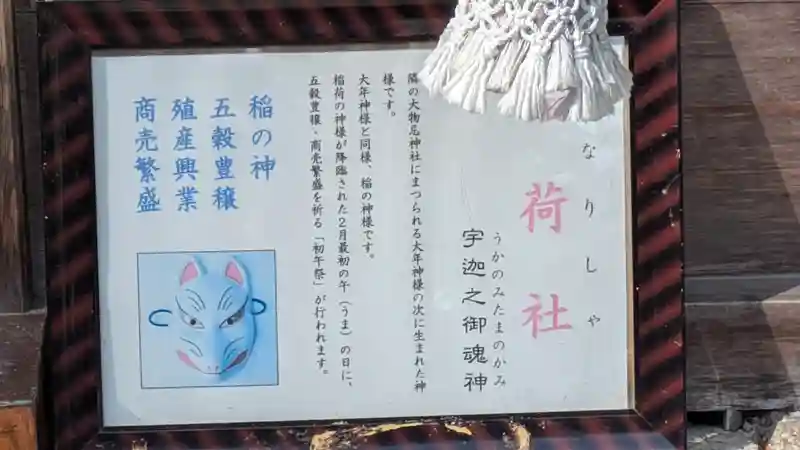 なりしゃ
荷社
うかのみたまのかみ
宇迦之御魂神
隣の大物忌神社にまつられる大年神様の次に生まれた神
様です。
大年神様と同様、稲の神様です。
稲荷の神様が降臨された2月最初の午(うま)の日に、
五穀豊穣・商売繁盛を祈る「初午祭」が行われます。
稲の神
五穀豊穣
殖産興業
商売繁盛